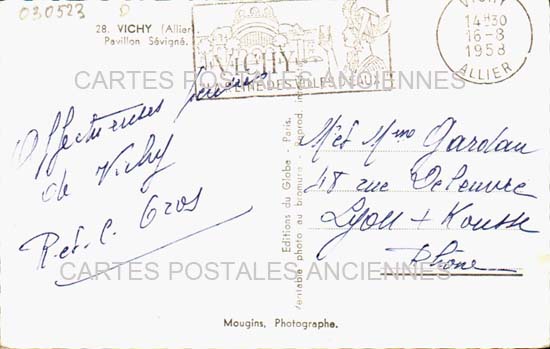 030523
28. VICHY (Allier)
Pavillon Sévigné.
VICHY
REINE DES VILLES D'EAUX
VICHY
14H30
16-8
1958
ALLIER
CARTES POSTALES ANCIENNES
Affectueuses pensées
de Vichy
R. et C. Gros
Editions du Globe - Paris.
Véritable photo au bromure - Reprod. interdite
M et Mme Gardan
48 rue Deleuvre
Lyon + Rousse
Rhône
CARTES POSTALES ANCIENNES
Mougins, Photographe.